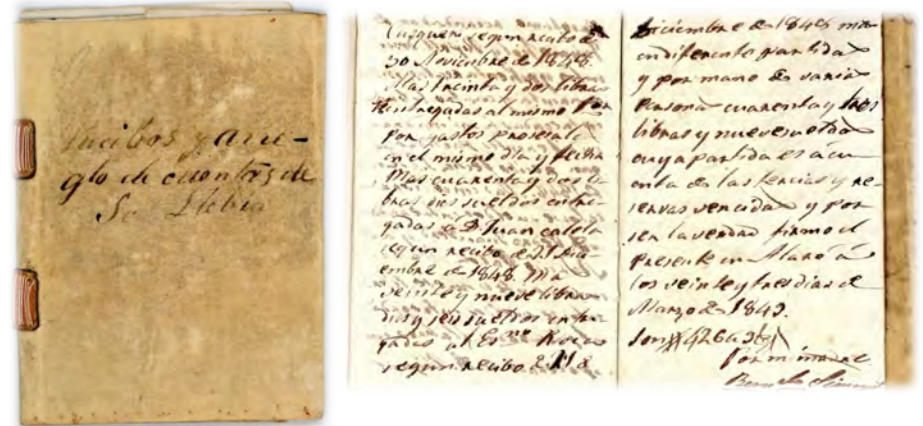 Recibos y arre-
glo de cuentas de
So
segun recibo de
30 Noviembre de 1848.
Mas treinta y dos libras
entregadas al mismo
por gastos
en el mismo dia y fecha
Mas cuarenta y dos li-
bras dies sueldos entre-
gadas á D. Juan
segun recibo de 21 Dici-
embre de 1848. Mas
veinte y nueve libras
dies y seis sueldos entre-
gadas al
segun recibo de
Diciembre de 1848 mas
en diferente partidas
y por mano de varias
Personas cuarenta y tres
libras y nueve sueldos
cuya partida es á cu-
enta de las tercias y re-
servas vencidas y por
ser la verdad firmo el
presente en Alaró á
los veinte y tres dias de
Marzo de 1849.
Son
Por mi madre